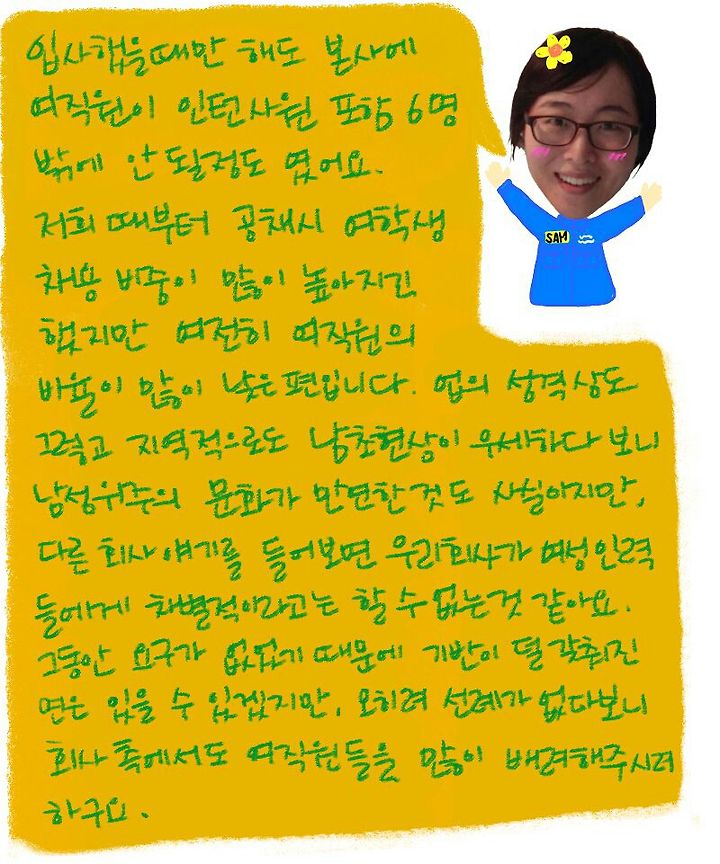 입사했을때만 해도 본사에
여직원이 인턴사원 포함 6명
밖에 안 될정도 였어요.
저희 때부터 공채시 여학생
채용 비중이 많이 높아지긴
했지만 여전히 여직원의
비율이 많이 낮은편입니다. 업의 성격상도
그렇고 지역적으로도 남초현상이 우세하다 보니
남성위주의 문화가 만연한것도 사실이지만,
다른 회사 얘기를 들어보면 우리회사가 여성인력
들에게 차별적이라고는 할 수 없는것 같아요.
그동안 요구가 없었기 때문에 기반이 덜 갖춰진
면은 있을 수 있겠지만, 오히려 선례가 없다보니
회사 측에서도 여직원들을 많이 배려해주시려
하구요.
SAM